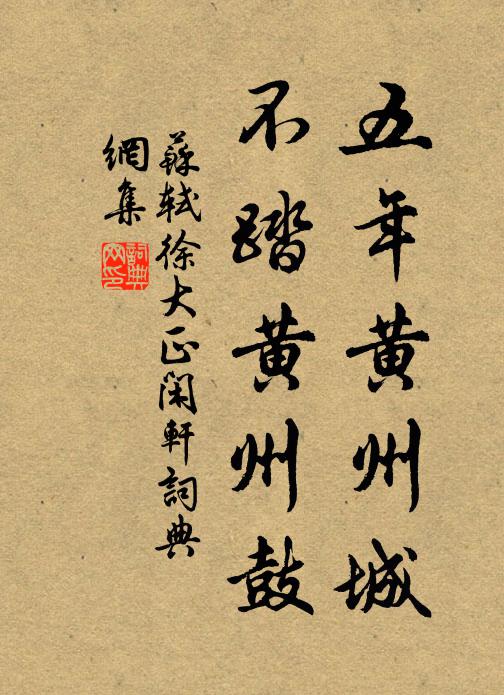 五年黄州城
不踏黄州鼓
蘇軾徐大正閑軒詞典
網集
詞典
网印